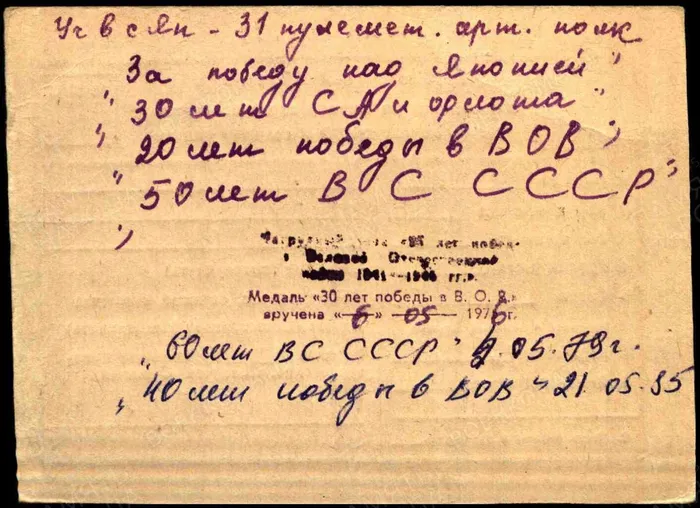 Уч в с яп - 31 пулемет. арт. полк
За победу над Японией"
"30 лет СА и флота"
"20 лет победы в ВОВ"
"50 лет ВС СССР"
"
Нагрудный знак «25 лет победы
в Великой Отечественной
войне 1941—1945 гг.».
Медаль «30 лет победы в В. О. В.»
вручена «6» 05 1976г.
"60 лет ВС СССР" 9.05.79г.
"40 лет победы в ВОВ" 21.05.85